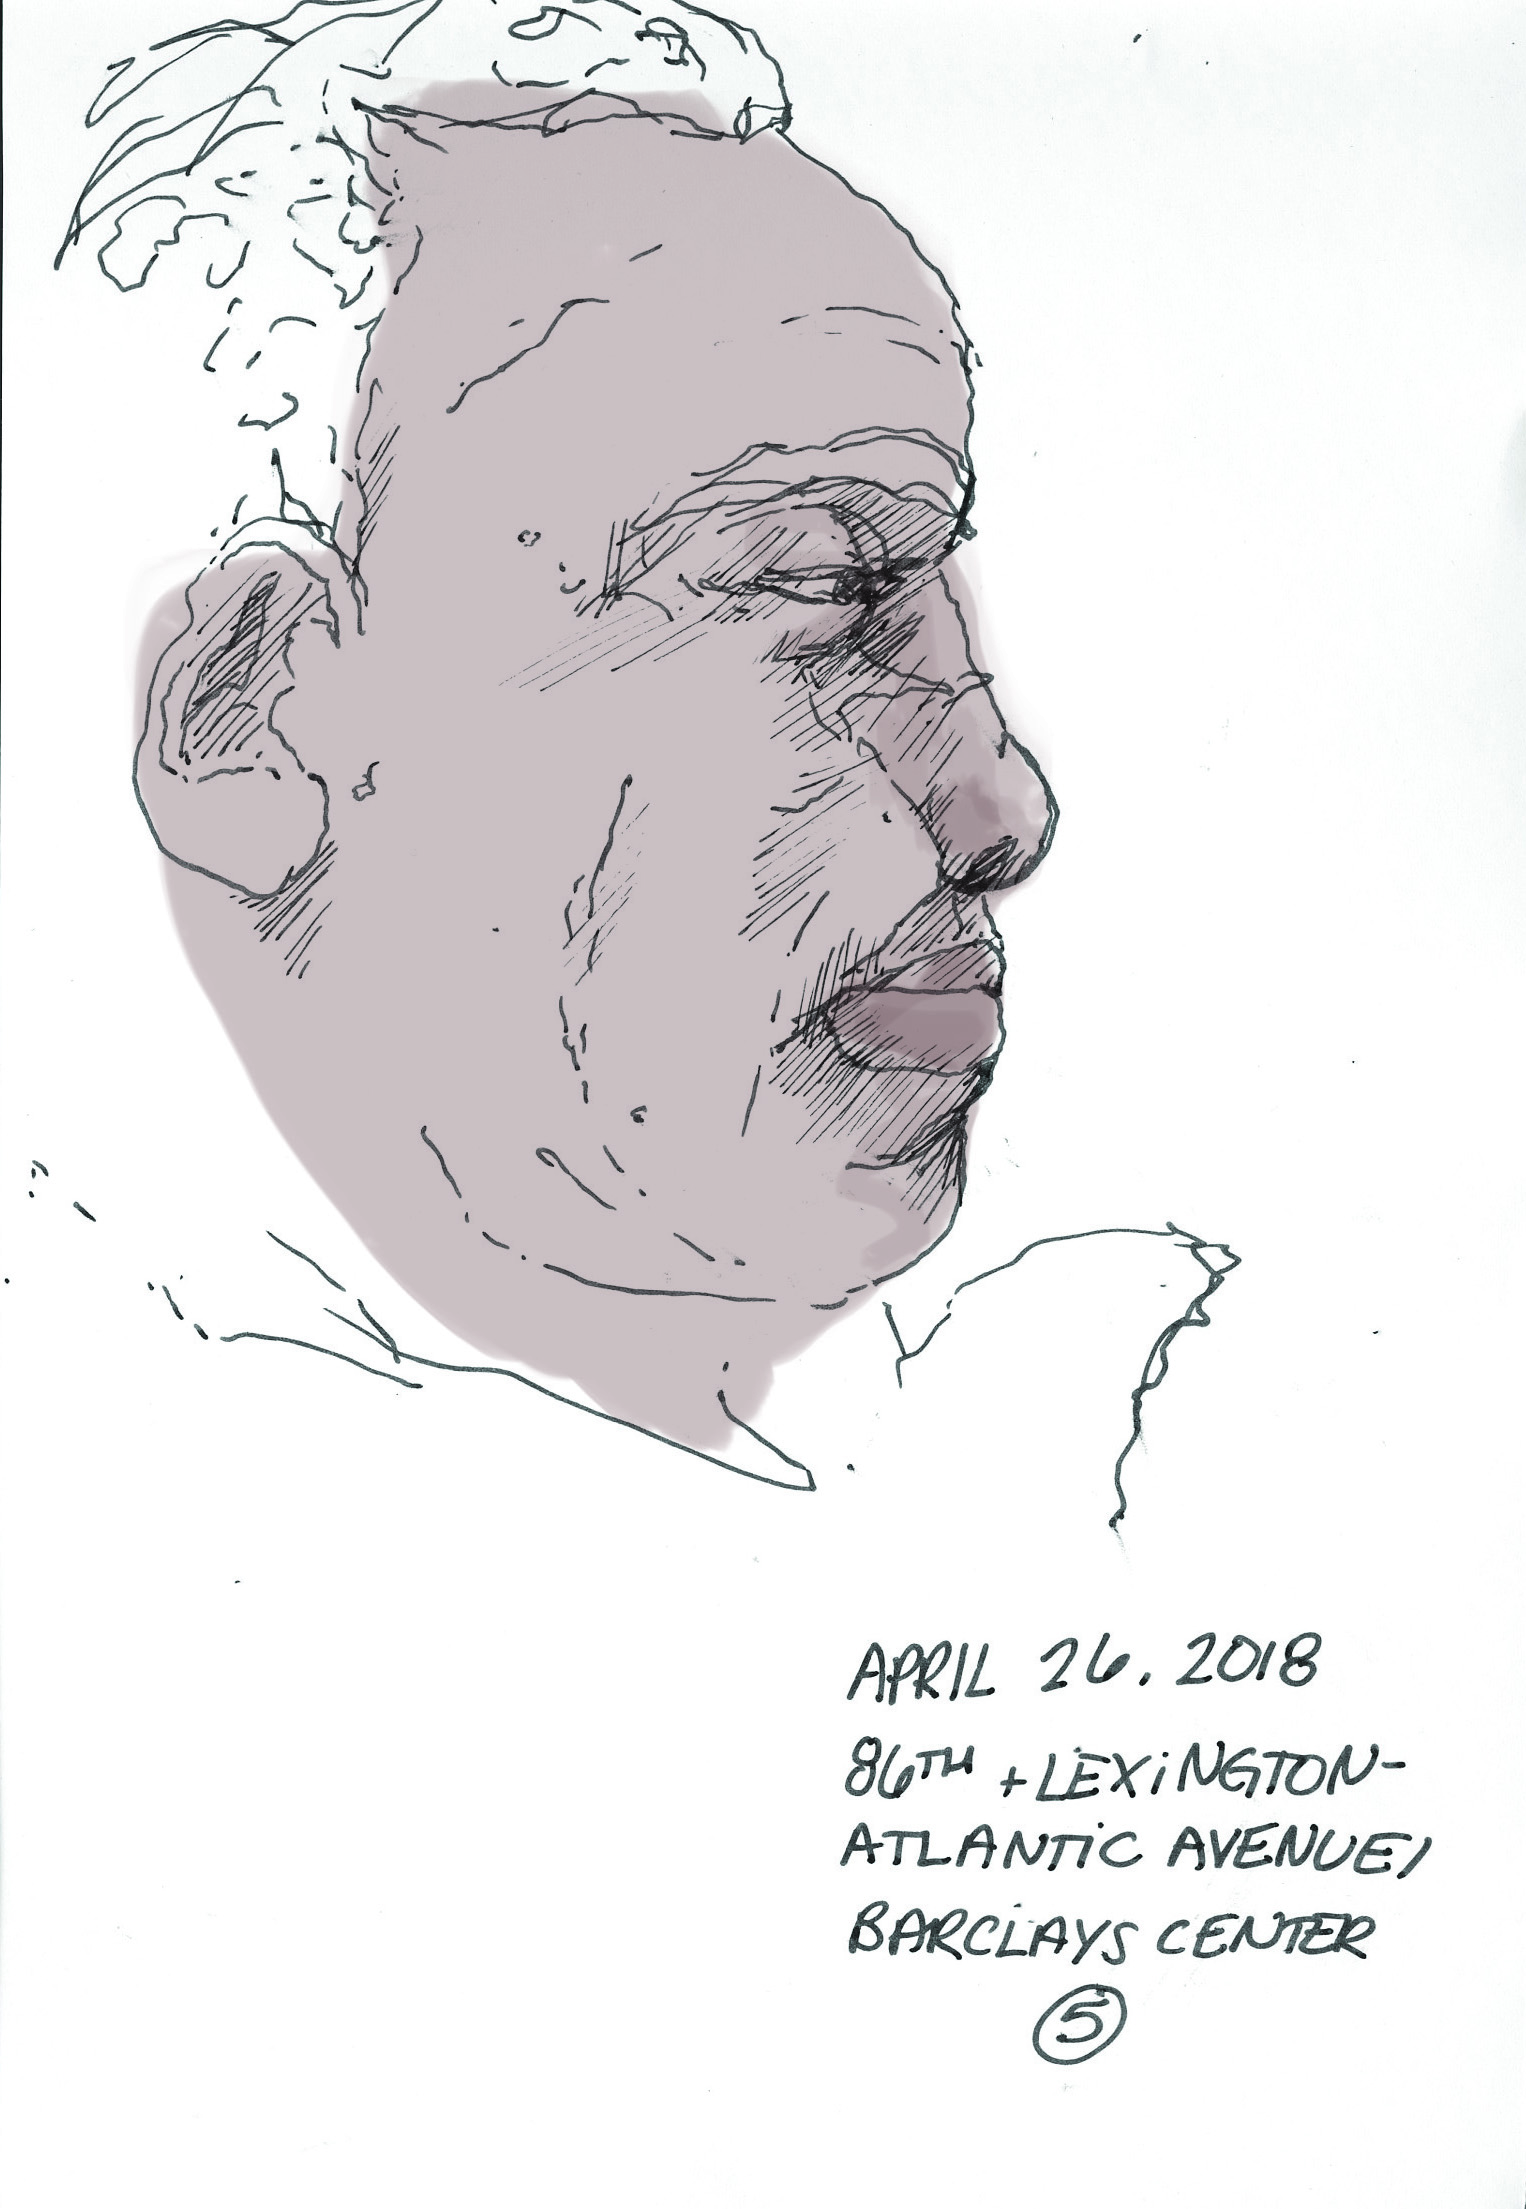 APRIL 26. 2018
86TH + LEXiNGTON-
ATLANTiC AVENUE/
BARCLAYS CENTER
5